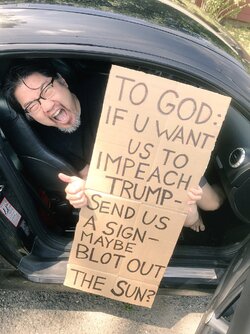 TO GOD:
IF U WANT
US TO
IMPEACH
TRUMP-
SEND US
A SIGN-
MAYBE
BLOT OUT
THE SUN?